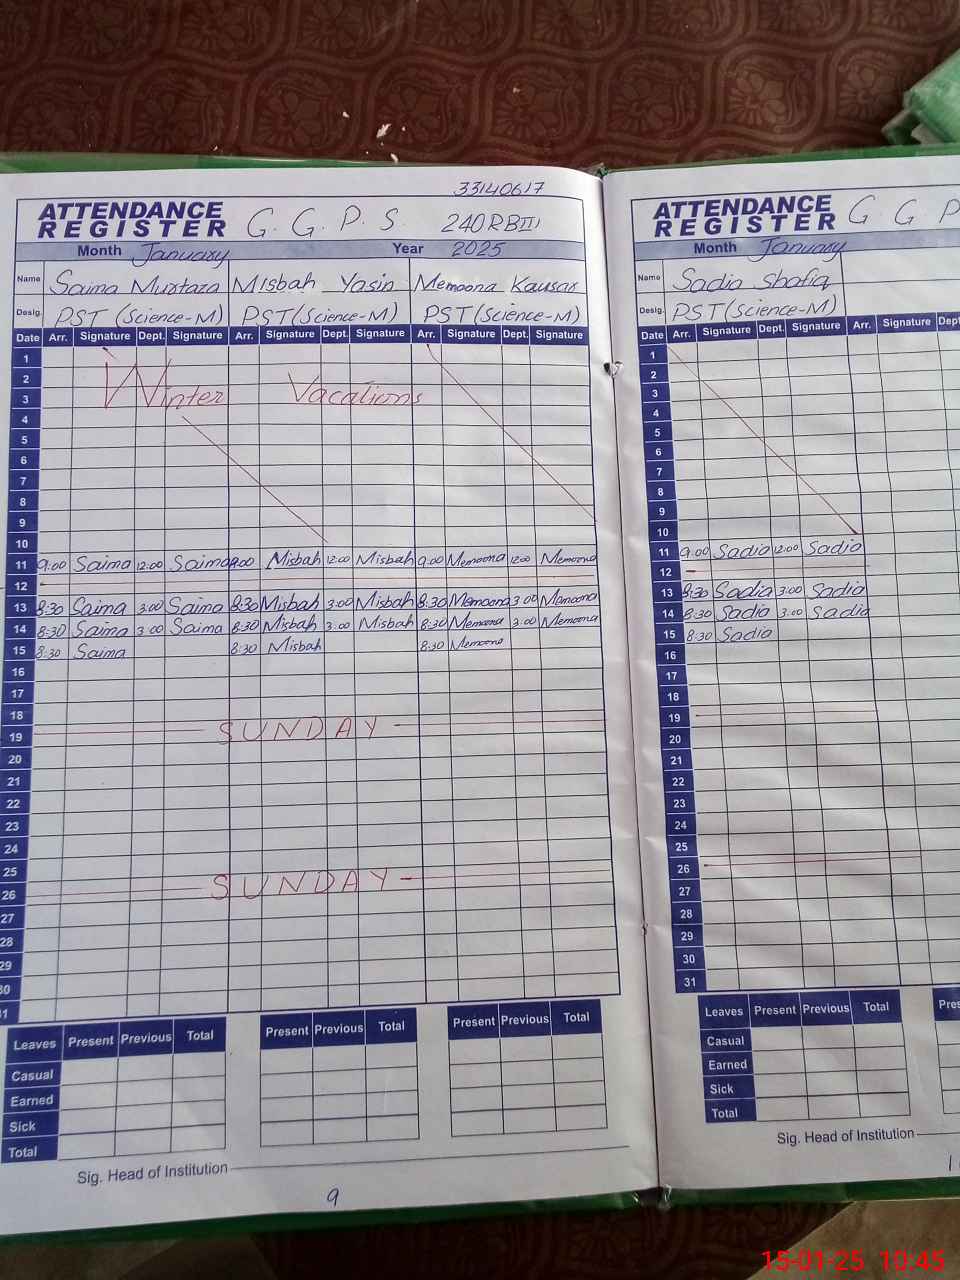 33140617
ATTENDANCE REGISTER G. G. P. S. 240RBIII
Month January Year 2025
Name Saima Murtaza Misbah Yasin Memoona Kausar
Desig. PST (Science-M) PST (Science-M) PST (Science-M)
Date Arr. Signature Dept. Signature Arr. Signature Dept. Signature Arr. Signature Dept. Signature
1
2
3 Winter Vacations
4
5
6
7
8
9
10
11 9:00 Saima 12:00 Saima 9:00 Misbah 12:00 Misbah 9:00 Memoona 12:00 Memoona
12
13 8:30 Saima 3:00 Saima 8:30 Misbah 3:00 Misbah 8:30 Memoona 3:00 Memoona
14 8:30 Saima 3:00 Saima 8:30 Misbah 3:00 Misbah 8:30 Memoona 3:00 Memoona
15 8:30 Saima 8:30 Misbah 8:30 Memoona
16
17
18
19 SUNDAY
20
21
22
23
24
25
26 SUNDAY
27
28
29
30
31
Leaves Present Previous Total Present Previous Total Present Previous Total
Casual
Earned
Sick
Total
Sig. Head of Institution
9
ATTENDANCE REGISTER G. G. P
Month January
Name Sadia Shafiq
Desig. PST (Science-M)
Date Arr. Signature Dept. Signature Arr. Signature Dept
1
2
3
4
5
6
7
8
9
10
11 9:00 Sadia 12:00 Sadia
12
13 8:30 Sadia 3:00 Sadia
14 8:30 Sadia 3:00 Sadia
15 8:30 Sadia
16
17
18
19
20
21
22
23
24
25
26
27
28
29
30
31
Leaves Present Previous Total Pres
Casual
Earned
Sick
Total
Sig. Head of Institution
15-01-25 10:45